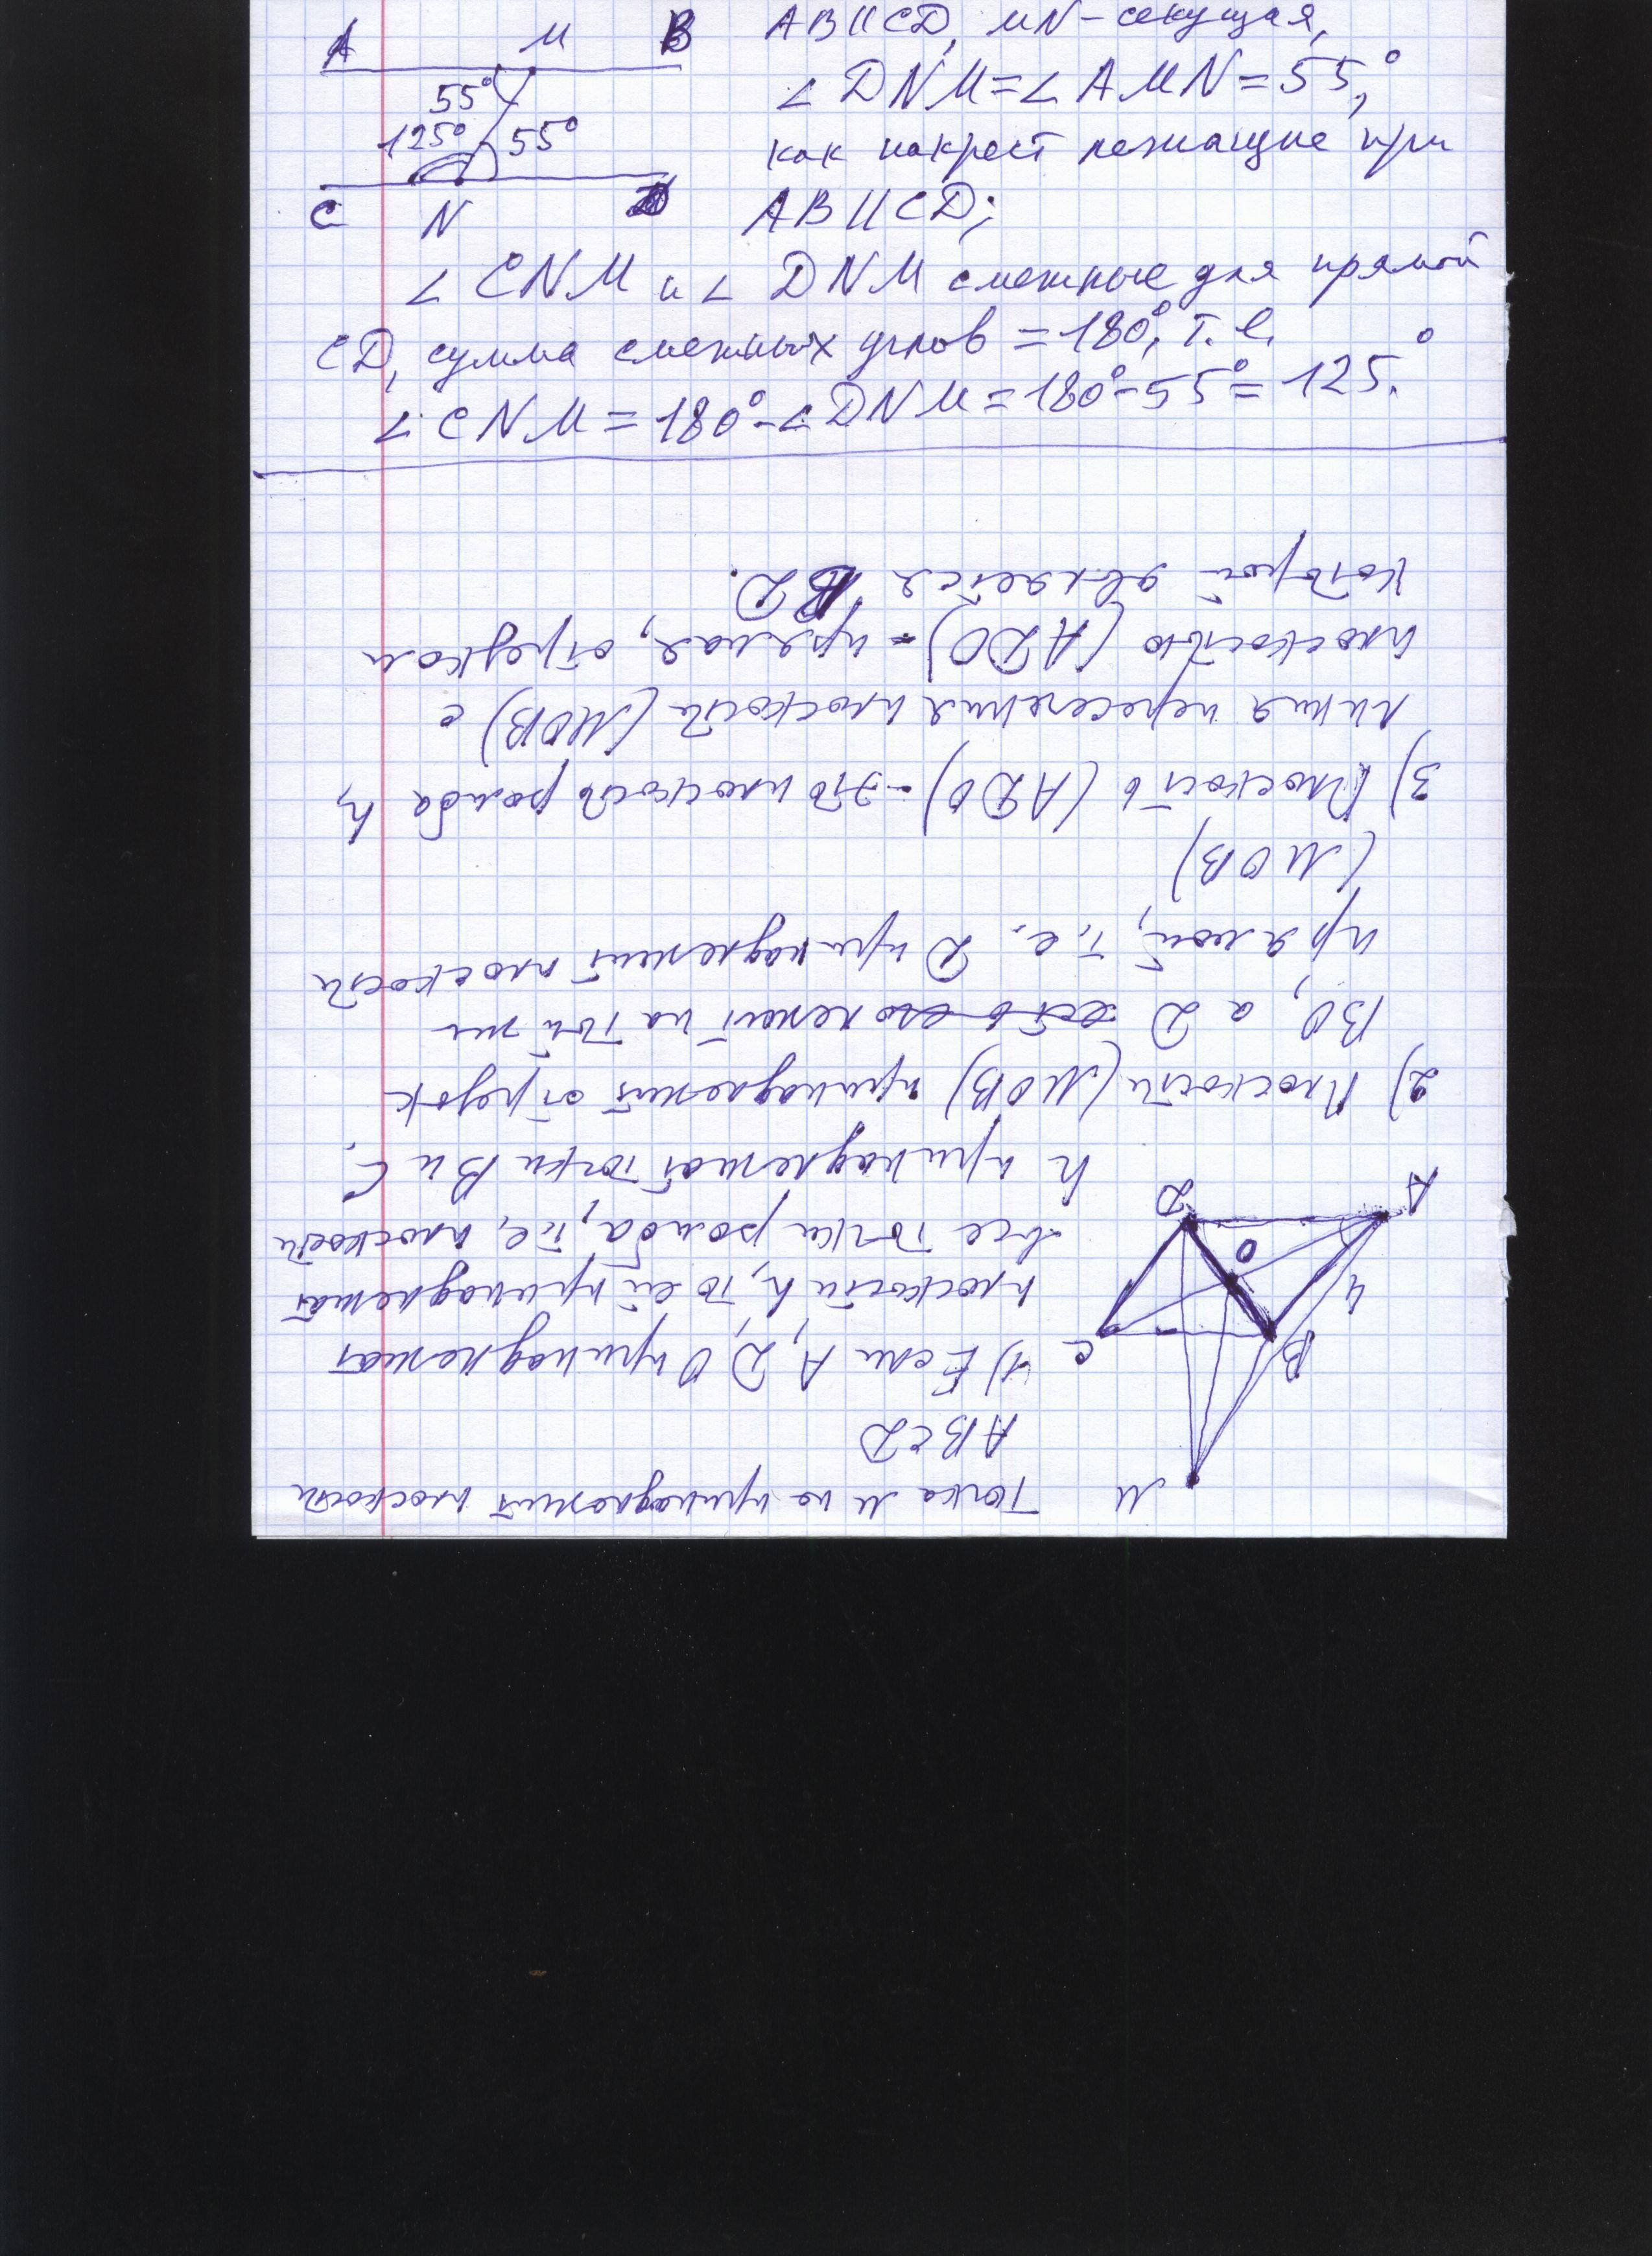 A M B
55°
125° 55°
C N D
AB||CD, MN-секущая,
< DNM=< AMN=55°,
как накрест лежащие при
AB||CD;
< CNM и < DNM смежные для прямой
CD, сумма смежных углов =180°, т.е.
< CNM=180°-<DNM=180°-55°=125°.
M
B
C
4
O
A
D
Точка M не принадлежит плоскости
ABCD
1) Если A, D, O принадлежат
плоскости h, то ей принадлежат
все точки ромба, т.е, плоскости
h принадлежат точки B и C.
2) Плоскости (MOB) принадлежит отрезок
BO, а D лежит на той же
прямой, т.е. D принадлежит плоскости
(MOB)
3) Плоскость (ADO) - это плоскость ромба h,
линия пересечения плоскости (MOB) с
плоскостью (ADO) - прямая, отрезком
которой является BD.